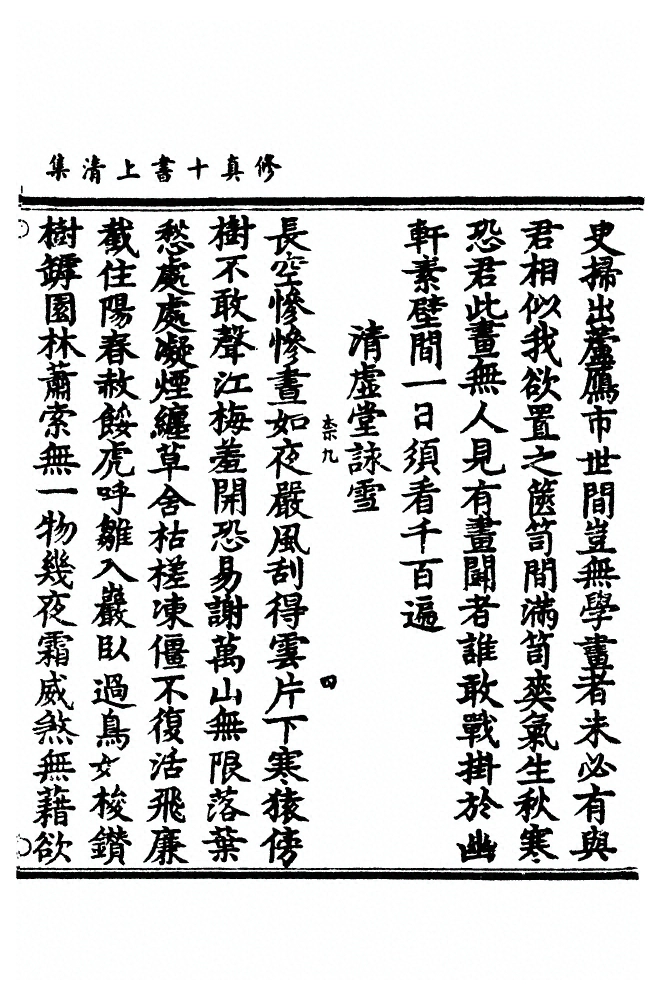 修真十書上清集
史掃出蘆鴈市世間豈無學畫者未必有與
君相似我欲置之篋笥間滿笥爽氣生秋寒
恐君此畫無人見有畫鬬者誰敢戰掛於幽
軒素壁間一日須看千百遍
清虛堂詠雪
柰九
四
長空慘慘晝如夜嚴風刮得雲片下寒猿傍
樹不敢聲江梅羞開恐易謝萬山無限落葉
愁處處凝煙纏草舍枯槎凍僵不復活飛廉
截住陽春赦餒虎呼雛入巖臥過鳥如梭鑽
樹罅園林蕭索無一物幾夜霜威煞無藉欲